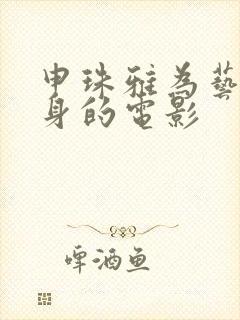 申珠雅為藝
身的電影
啤酒鱼